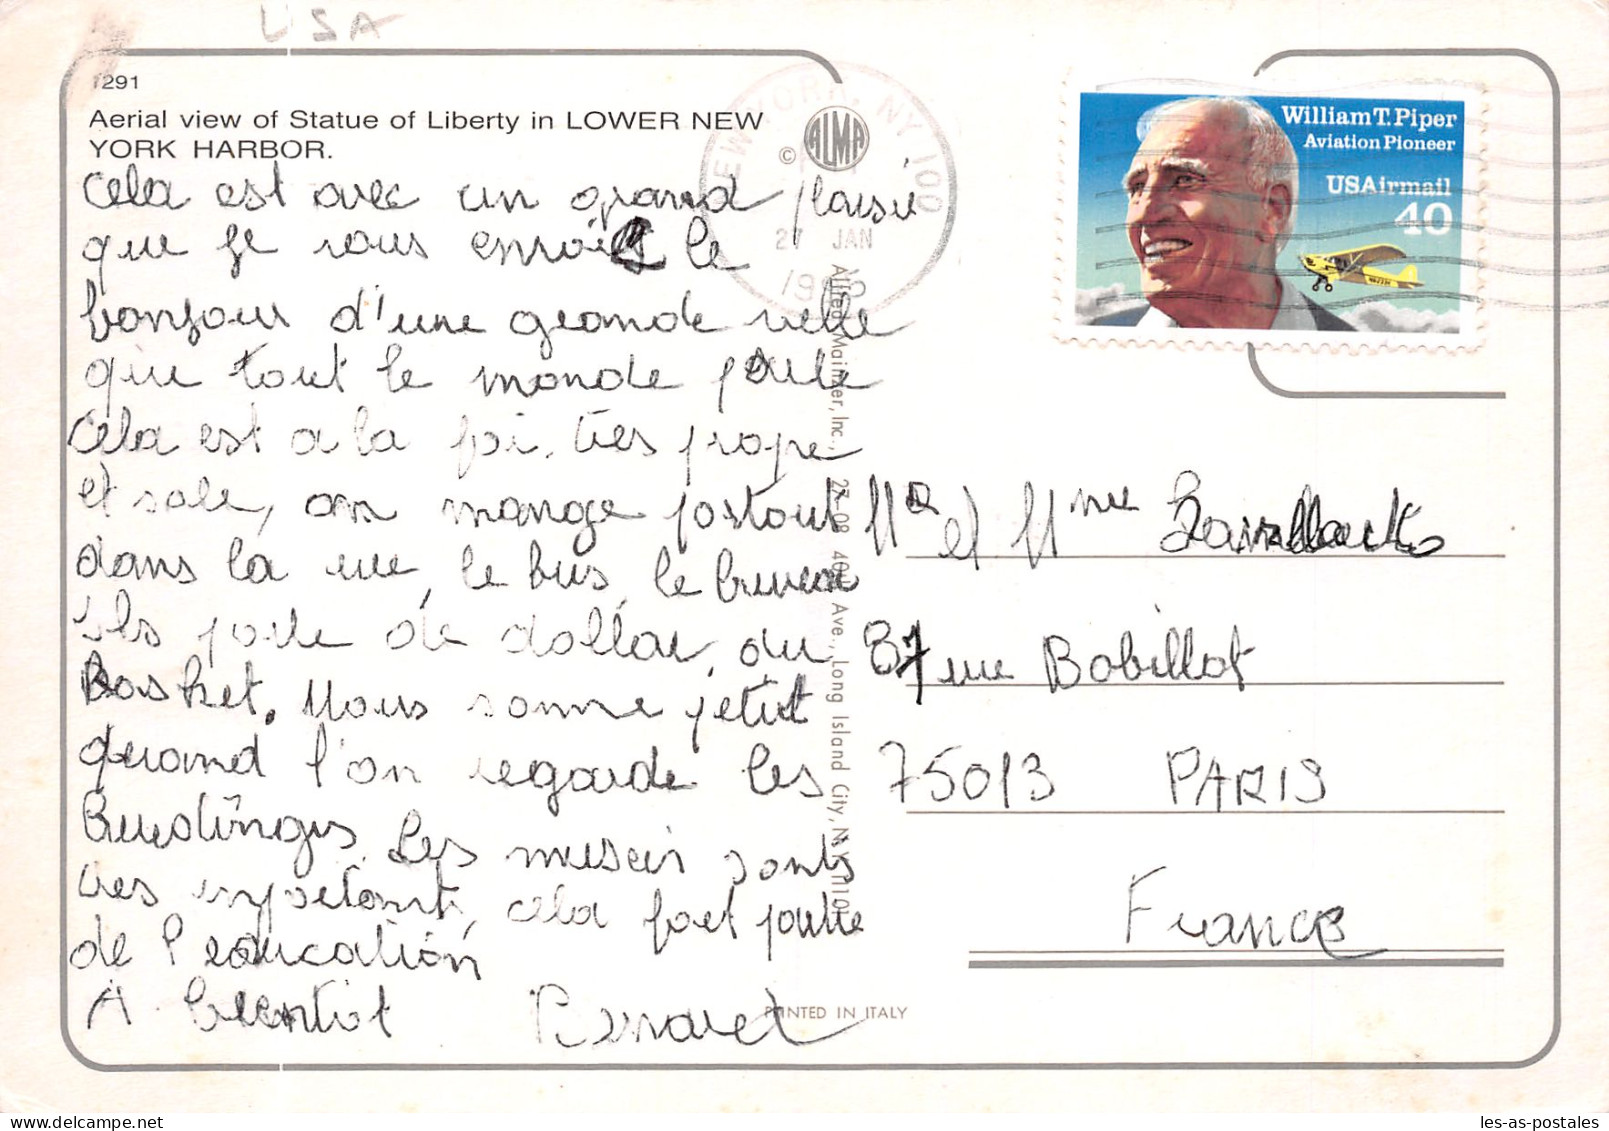 USA
1291
Aerial view of Statue of Liberty in LOWER NEW
YORK HARBOR.
© ALMA
NEW YORK, NY 100
27 JAN
William T. Piper
Aviation Pioneer
USAirmail
40
Cela est avec un grand plaisir
que je vous envois le
bonjour d'une grande ville
que tout le monde parle
Cela est a la foi. très propre
et sale, on mange partout
dans la rue, le bus, le bureau
ils parle de dollar, du
Basket. Nous somme petit
quand l'on regarde les
Buildinges. Les museir sonts
tres importants, cela fait partie
de l'education
A Bientiot
Alfred Mainzer, Inc., 27-08 40th Ave., Long Island City, N.Y. 11101
PRINTED IN ITALY
Mr et Mme
87 rue Bobillot
75013 PARIS
France
les-as-postales